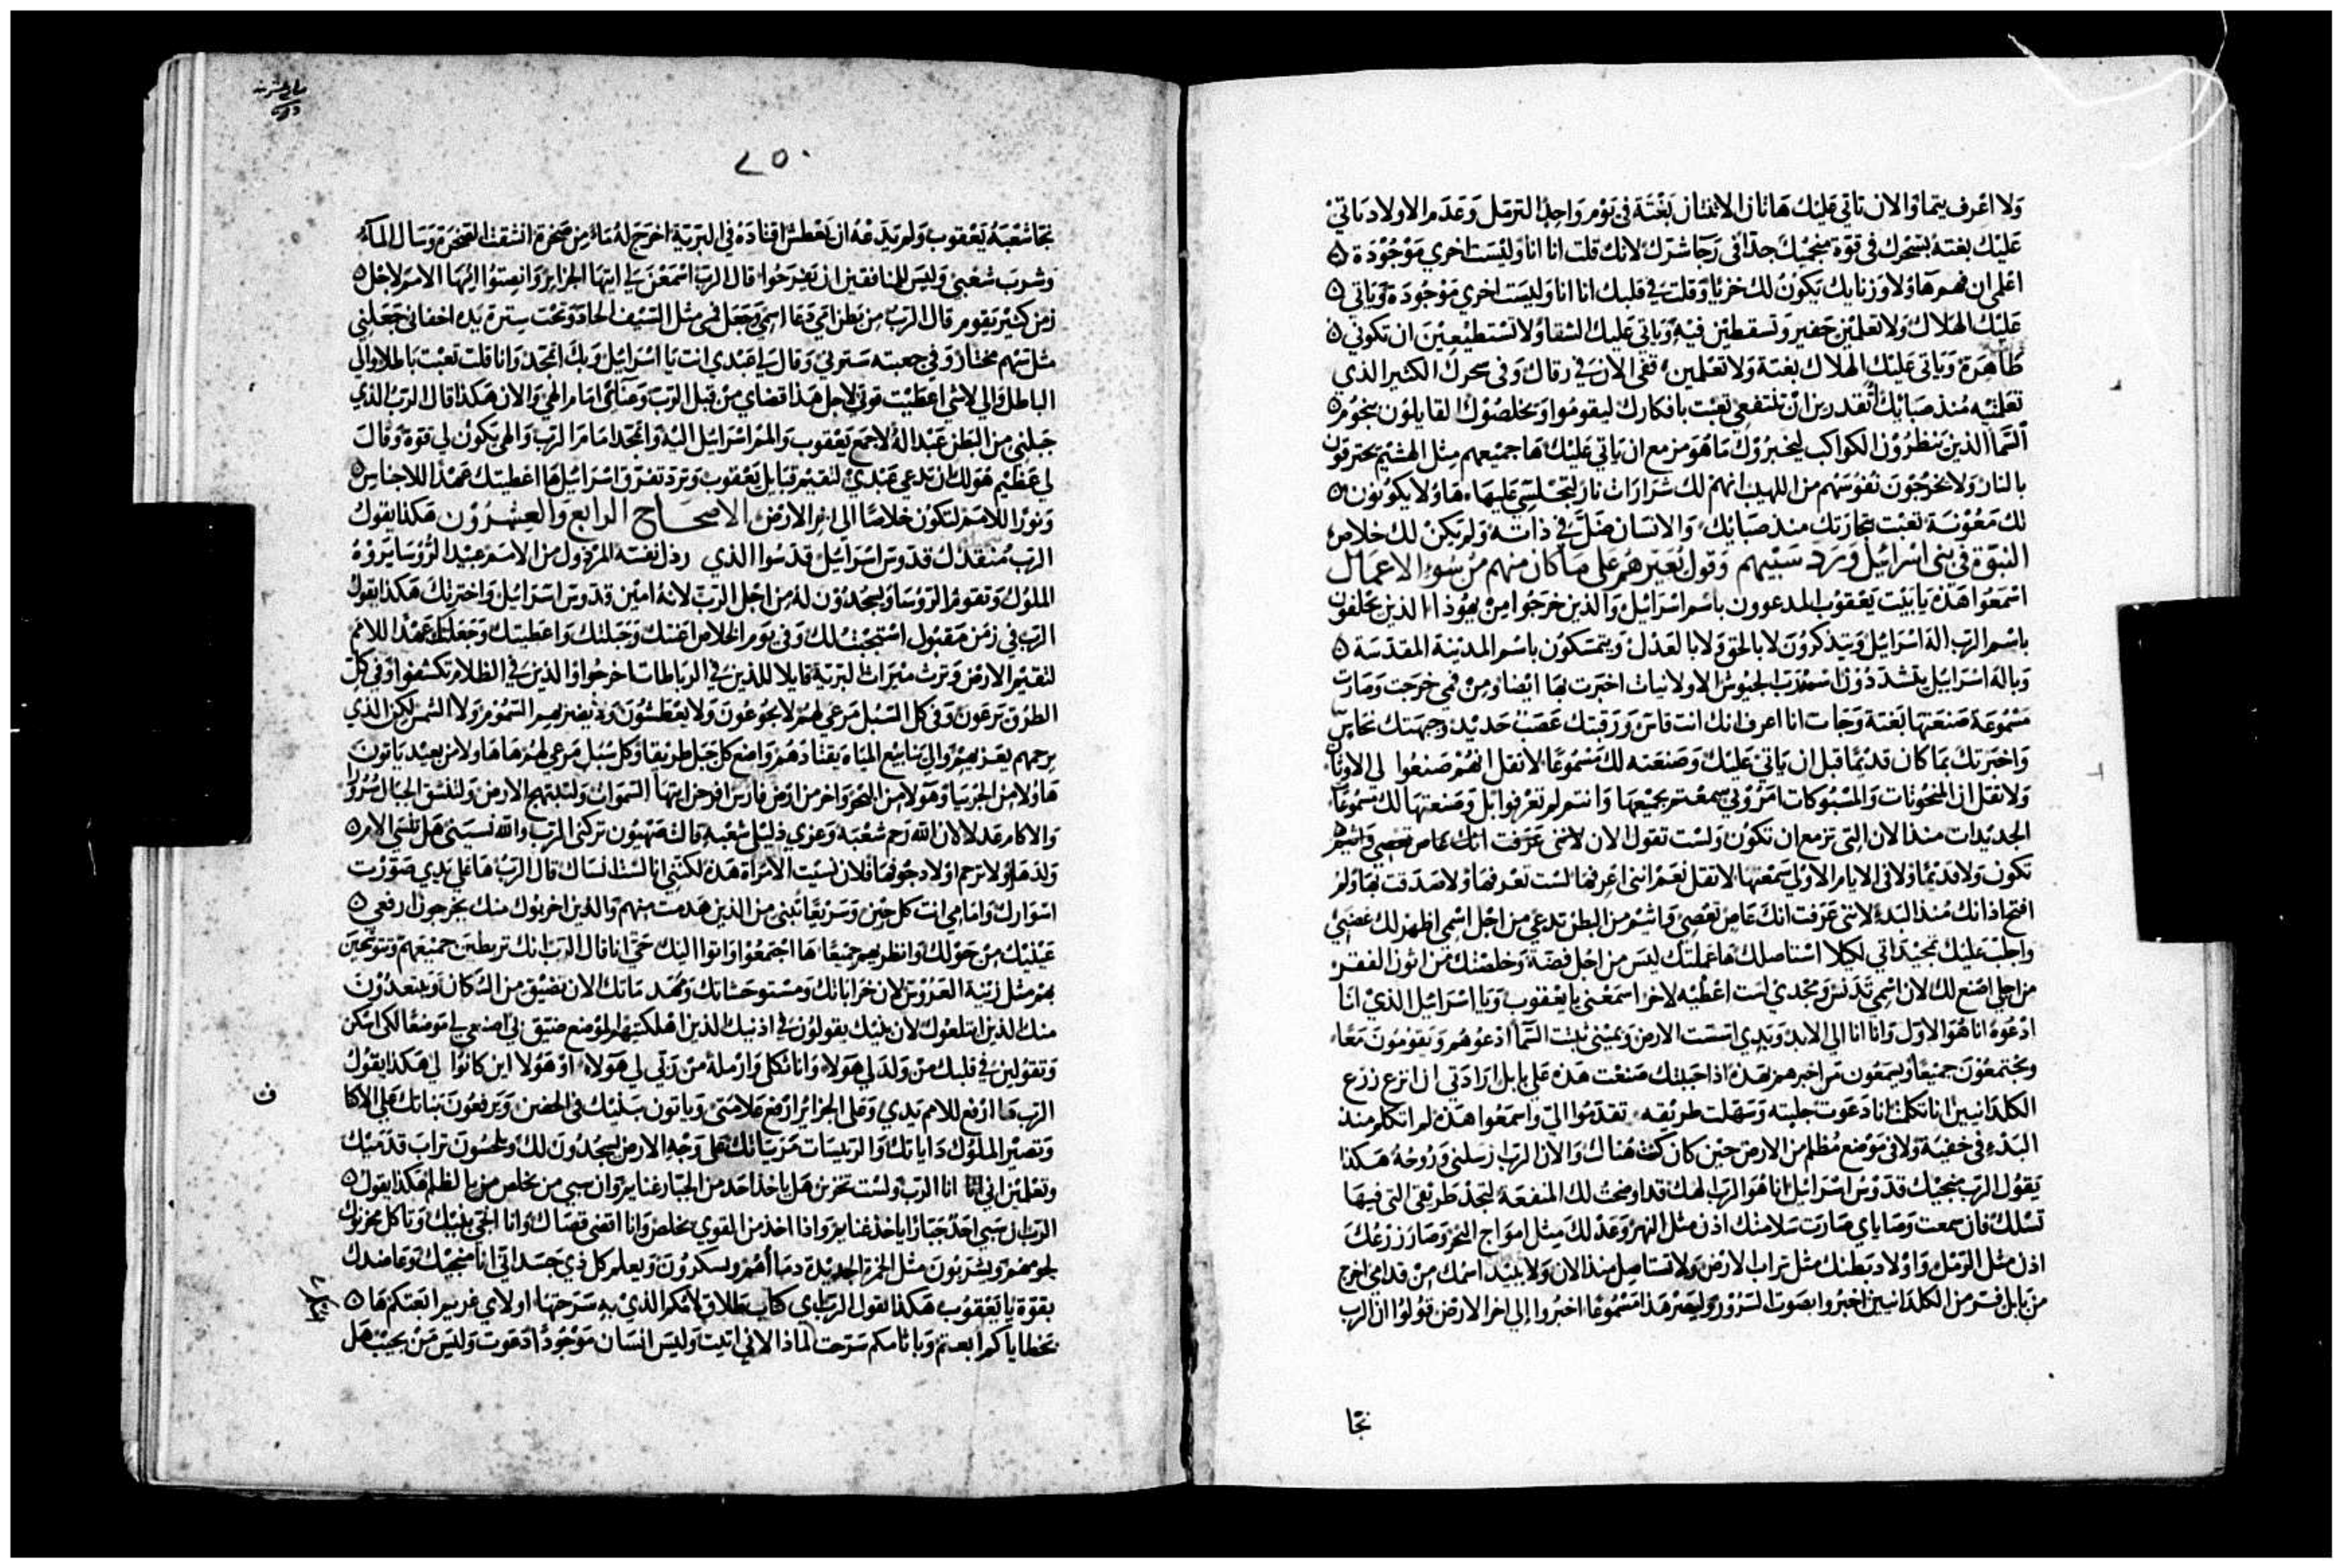 ولا اعرف يتما والان تاتي عليك هاتان الاثنتان بغتة في يوم واحد الترمل وعدم الاولاد ياتي
عليك بغته بسحرك في قوة منجميك جدا في رجا شرك لانك قلت انا انا وليست اخري موجودة
اعلمي ان فهم هاولا وزنايك يكون لك خزيا وقلت في قلبك انا انا وليست اخري موجودة وياتي
عليك الهلاك ولا تعلمين حفير وتسقطين فيه وياتي عليك الشقا ولا تستطيعين ان تكوني
طاهرة وياتي عليك الهلاك بغتة ولا تعلمين قفي الان في رقاك وفي سحرك الكثير الذي
تعلمتيه منذ صبايك أتقدرين ان تنتفعي تعبت بافكارك ليقوموا ويخلصوك القايلون بنجوم
السما الذين ينظرون الكواكب ليخبروك ما هو مزمع ان ياتي عليك ها جميعهم مثل الهشيم يحترقون
بالنار ولا يخرجون نفوسهم من اللهيب انهم لك شرارات نار لتجلسي عليها هاولا يكونون
لك معونة تعبت بتجارتك منذ صبايك والانسان ضل في ذاته ولم يكن لك خلاص
النبوة في بني اسرائيل ورد سبيهم وقول يعيرهم على ما كان منهم من سوء الاعمال
اسمعوا هذه يا بيت يعقوب المدعوون باسم اسرائيل والذين خرجوا من يهوذا الذين يحلفون
باسم الرب اله اسرائيل ويتذكرون لا بالحق ولا بالعدل ويتمسكون باسم المدينة المقدسة
وباله اسرائيل يتشددون اسمه رب الجيوش الاولانيات اخبرت بها ايضا ومن فمي خرجت وصارت
مسموعة صنعتها بغتة وجات انا اعرف انك انت قاس ورقبتك عصب حديد وجبهتك نحاس
واخبرتك بما كان قديما قبل ان ياتي عليك وصنعته لك مسموعا لا تقل انهم صنعوا لي الاوثان
ولا تقل ان المنحوتات والمسبوكات امروني سمعتم بجميعها وانتم لم تعرفوا بل وصنعتها لك مسموعا
الجديدات منذ الان التي تزمع ان تكون ولست تقول الان لانني عرفت انك عاص تعصي
تكون ولا قديما ولا في الايام الاولي سمعتها لا تقل نعم انني اعرفها لست تعرفها ولا صدقت بها ولم
افتح اذانك منذ البدء لانني عرفت انك عاص تعصي وماشم من البطن تدعي من اجل اسمي اظهر لك غضبي
واجلب عليك تمجيداتي لكيلا استاصلك ها عملتك ليس من اجل فضة وخلصتك من اتون الفقر
من اجلي اصنع لك لان اسمي تدنس ومجدي لست اعطيه لاخر اسمعني يا يعقوب ويا اسرائيل الذي انا
ادعوه انا هو الاول وانا انا الي الابد ويدي اسست الارض ويميني ثبتت السما ادعوهم ويقومون معا
ويجتمعون جميعا ويسمعون من اخبرهم بهذه اذا حببتك صنعت هذه علي بابل ارادتي ان انزع زرع
الكلدانيين انا تكلمت انا دعوت جلبته وسهلت طريقه تقدموا الي واسمعوا هذه لم اتكلم منذ
البدء في خفية ولا في موضع مظلم من الارض حين كان كنت هناك والان الرب ارسلني وروحه هكذا
يقول الرب منجيك قدوس اسرائيل انا هو الرب الهك قد اوضحت لك المنفعة لتجد طريقي التي فيها
تسلك فان سمعت وصاياي صارت سلامتك اذن مثل النهر وعدلك مثل امواج البحر وصار زرعك
اذن مثل الرمل واولاد بطنك مثل تراب الارض ولا تستاصل منذ الان ولا يبيد اسمك من قدامي اخرج
من بابل فر من الكلدانيين اخبروا بصوت السرور وليصر هذا مسموعا اخبروا إلي اخر الارض قولوا ان الرب
نجا
٢٥٠
نجا شعبه يعقوب ولم يدعه ان يعطش اقتاده في البرية اخرج له ماء من صخرة انشقت الصخرة وسال الماء
وشرب شعبي وليس للمنافقين ان يفرحوا قال الرب اسمعن لي ايتها الجزائر وانصتوا ايها الامم لاجل
زمن كثير يقوم قال الرب من بطن امي دعا اسمي وجعل فمي مثل السيف الحاد وتحت سترة يده اخفاني جعلني
مثل سهم مختار وفي جعبته سترني وقال لي عبدي انت يا اسرائيل وبك اتمجد وانا قلت تعبت باطلا والي
الباطل والي لاشي اعطيت قوتي لاجل هذا قضاي من قبل الرب وصنايعي امام الهي والان هكذا قال الرب الذي
جبلني من البطن عبدا له لاجمع يعقوب والم اسرائيل اليه واتمجد امام الرب والهي يكون لي قوة وقال
لي عظيم هو لك ان تدعي عبدي لتقيم قبايل يعقوب وترد تفرق اسرائيل ها اعطيتك عهدا للاجناس
ونورا للامم لتكون خلاصا الى اخر الارض الاصحاح الرابع والعشرون هكذا يقول
الرب منقذك قدوس اسرائيل قدسوا الذي رذل نفسه المرذول من الامم عبد الروسا يروه
الملوك وتقوم الروسا ويسجدون له من اجل الرب لانه امين قدوس اسرائيل واخترتك هكذا يقول
الرب في زمن مقبول استجبت لك وفي يوم الخلاص اعنتك وجبلتك واعطيتك وجعلتك عهدا للامم
لتقيم الارض وترث ميراث البرية قايلا للذين في الرباطات اخرجوا والذين في الظلام تكشفوا وفي كل
الطرق ترعون وفي كل السبل مرعي لهم لا يجوعون ولا يعطشون ولا يضر بهم السموم ولا الشمس لكن الذي
يرحمهم يعزيهم والي ينابيع المياه يقتادهم واضع كل جبل طريقا وكل سبل مرعي لهم هاهاولا من بعيد ياتون
هاولا من الجربيا وهولا من البحر واخر من ارض فارس افرحن ايتها السموات ولتبتهج الارض ولتنشق الجبال سرورا
والاكام عدلا لان الله رحم شعبه وعزي ذليلي شعبه قالت صهيون تركني الرب والله نسيني هل تنسي الام
ولدها ولا ترحم اولاد جوفها فلان نسيت الامراة هذه لكنني انا لست انساك قال الرب ها علي يدي صورت
اسوارك وامامي انت كل حين وسريعا تبني من الذين هدمت منهم والذين اخربوك منك يخرجون ارفعي
عينيك من حولك وانظريهم جميعا ها اجتمعوا واتوا اليك حي انا قال الرب انك تربطين جميعهم وتتوشحين
بهم مثل زينة العروس لان خراباتك ومستوحشاتك ومهدماتك الان تضيق من السكان ويبتعدون
منك الذين ابتلعوك لان بنيك يقولون في اذنيك الذين اهلكتيهم الموضع ضيق لي اصنعي لي موضعا لكي اسكن
وتقولين في قلبك من ولد لي هولاء وانا ثكلي وارملة من ربي لي هولاء او هولا اين كانوا لي هكذا يقول
الرب ها ارفع للامم يدي وعلى الجزائر ارفع علامتي وياتون ببنيك في الحضن ويرفعون بناتك علي الاكتا
ف
وتصير الملوك داياتك والرييسات مرضعاتك على وجه الارض يسجدون لك ويلحسون تراب قدميك
وتعلمين اني انا الرب ولست تخزين هل ياخذ احد من الجبار غنايم وان سبي من يخلص من يد الظلم هكذا يقول
الرب ان سبي احد جبارا ياخذ غنايم واذا اخذ من القوي يخلص وانا اقضي قضاك وانا انجي بنيك وتاكل محزنوك
لحومهم ويشربون مثل الخمرة الجديدة دماأهم ويسكرون ويعلم كل ذي جسد اني انا منجيك وعاضدك
بقوة يا يعقوب هكذا يقول الرب اي كتاب طلاق لامكم الذي به سرحتها او لاي غريم ابعتكم ها
بخطاياكم ابعتم وباثامكم سرحت لماذا لاني اتيت وليس انسان موجودا دعوت وليس من يجيب هل